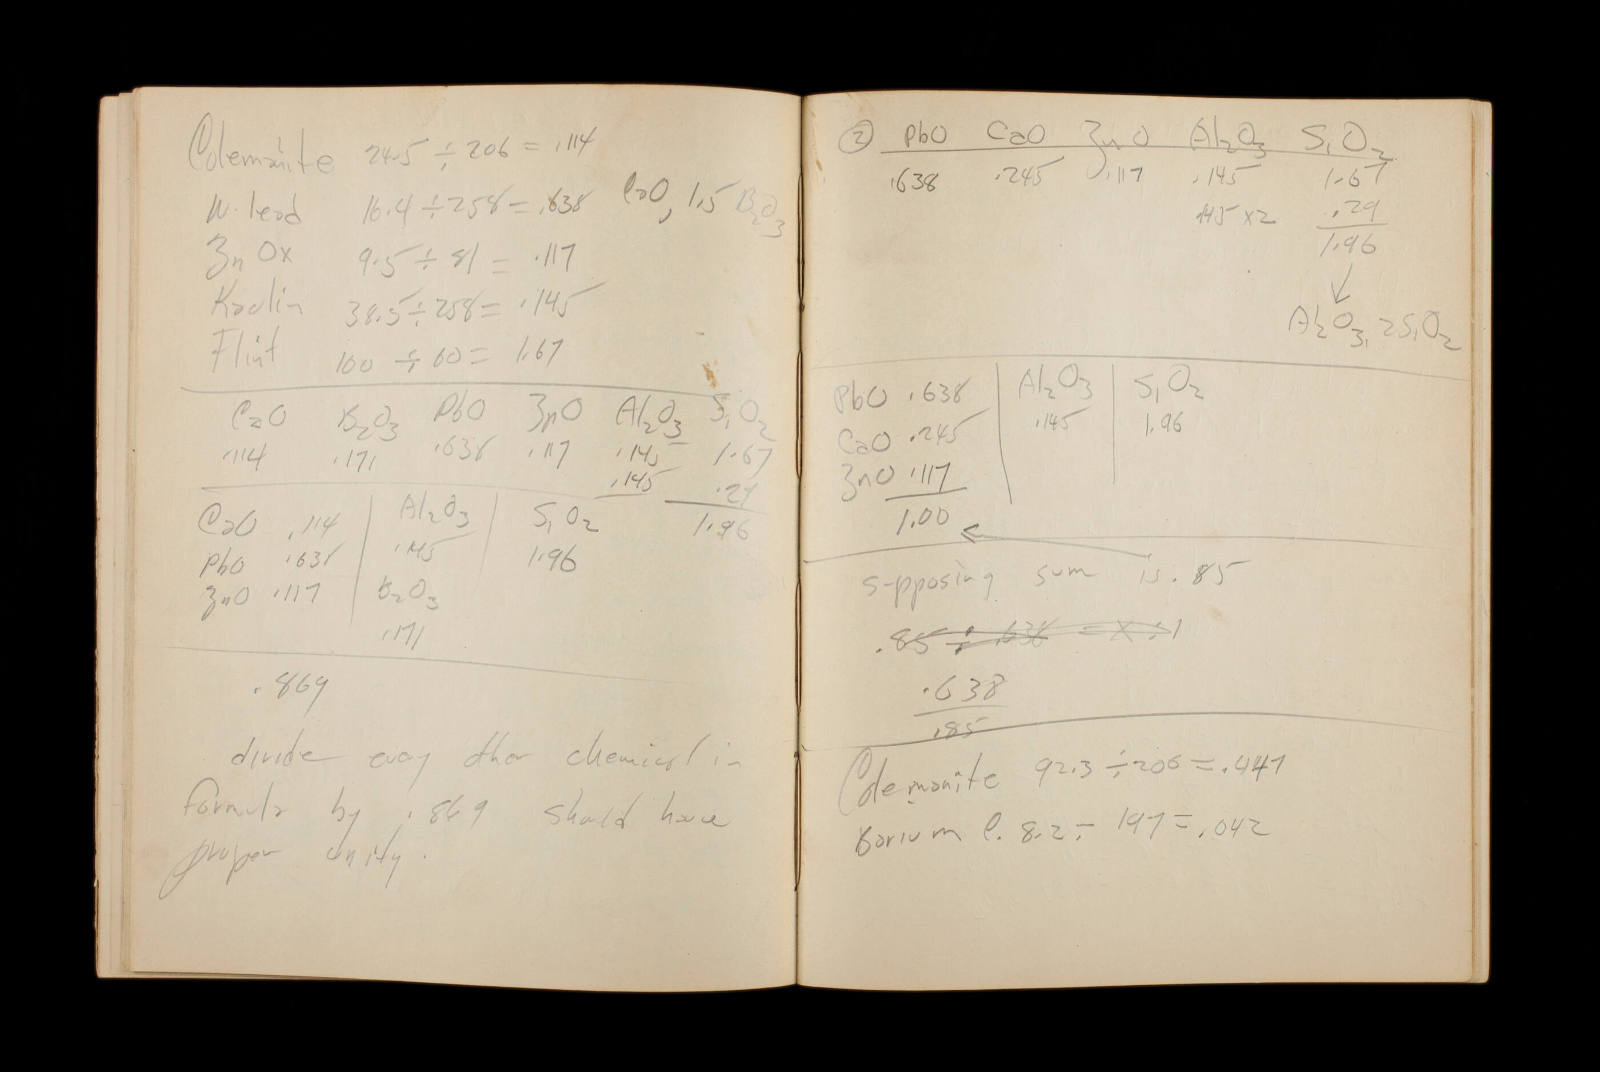 Colemanite 24.5 ÷ 206 = .114
W. lead 16.4 ÷ 258 = .638 CaO, 1.5 B2O3
Zn Ox 9.5 ÷ 81 = .117
Kaolin 38.5 ÷ 258 = .145
Flint 100 ÷ 60 = 1.67
CaO B2O3 PbO ZnO Al2O3 SiO2
.114 .171 .638 .117 .145 1.67
.145 .29
1.96
CaO .114 Al2O3 SiO2
PbO .638 .145 1.96
ZnO .117 B2O3
.171
.869
divide every other chemical in
formula by .869 should have
proper unity.
② PbO CaO ZnO Al2O3 SiO2
.638 .245 .117 .145 1.67
.145 x2 .29
1.96
Al2O3, 2SiO2
PbO .638 Al2O3 SiO2
CaO .245 .145 1.96
ZnO .117
1.00
supposing sum is .85
.85 ÷ .638 = X ÷ 1
.638
.85
Colemanite 92.3 ÷ 206 = .447
Barium C. 8.2 ÷ 197 = .042